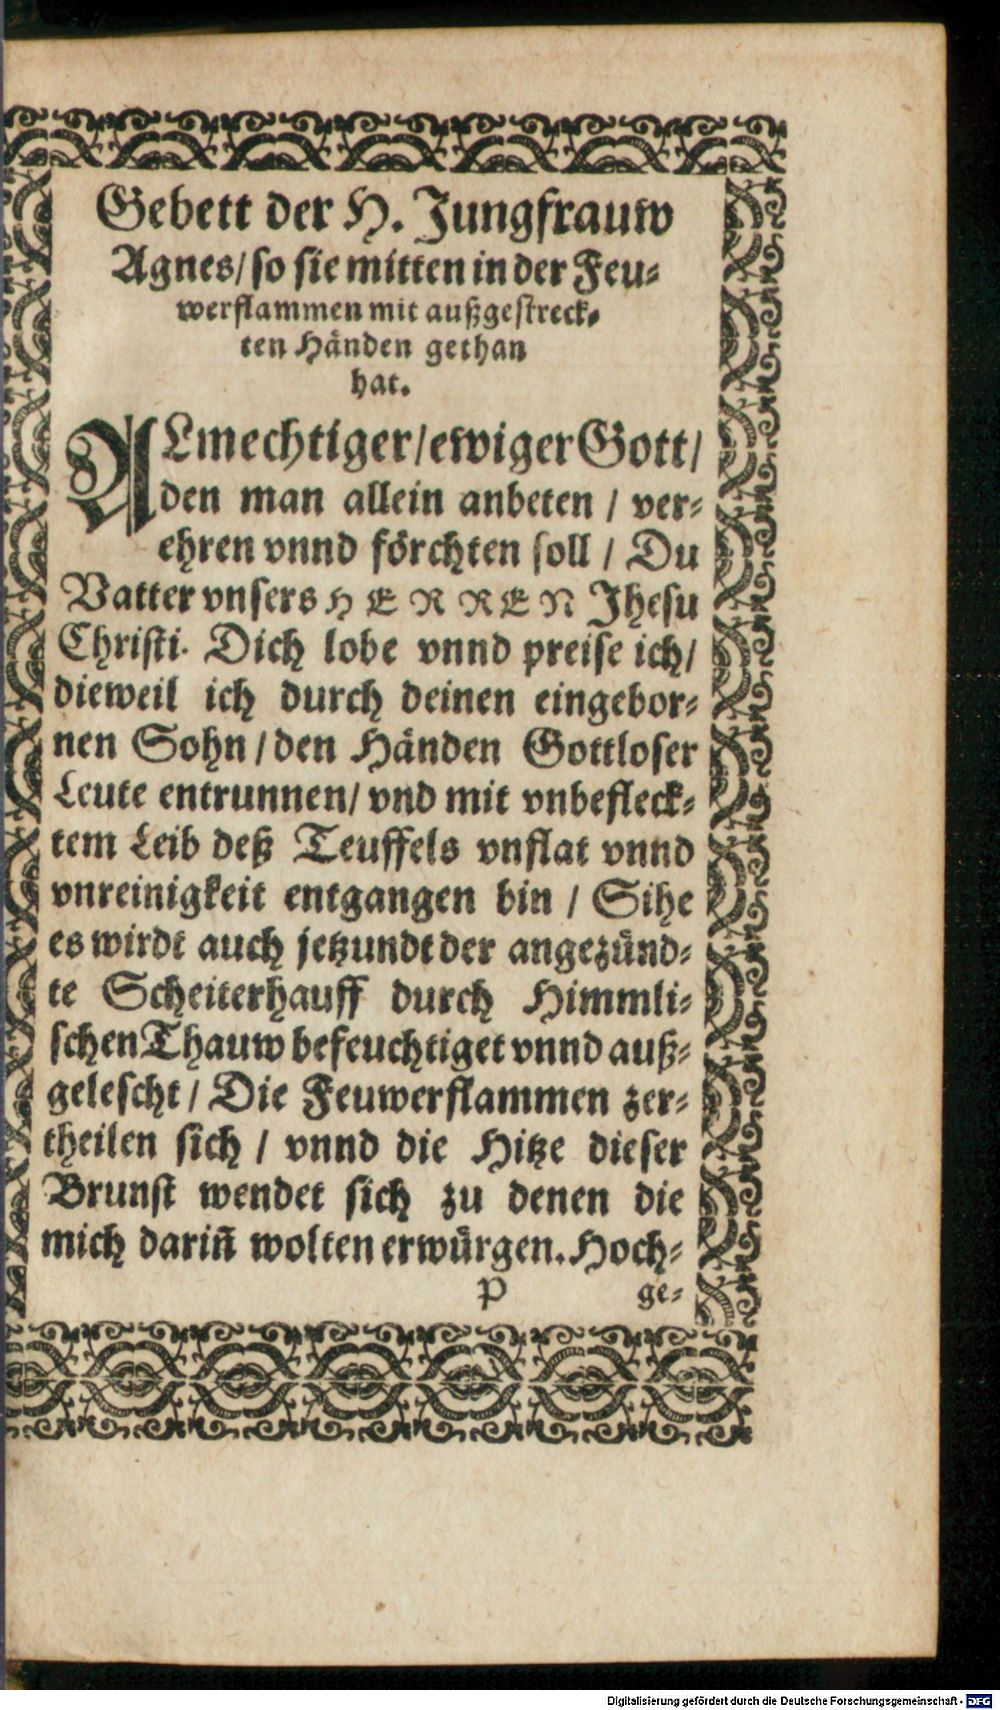 Gebett der H. Jungfrauw
Agnes/ so sie mitten in der Feu⸗
werflammen mit außgestreck⸗
ten Händen gethan
hat.
ALmechtiger/ ewiger Gott/
den man allein anbeten / ver⸗
ehren vnnd förchten soll / Du
Vatter vnsers HERREN Jhesu
Christi. Dich lobe vnnd preise ich/
dieweil ich durch deinen eingebor⸗
nen Sohn / den Händen Gottloser
Leute entrunnen/ vnd mit vnbefleck⸗
tem Leib deß Teuffels vnflat vnnd
vnreinigkeit entgangen bin / Sihe
es wirdt auch jetzundt der angezünd⸗
te Scheiterhauff durch Himmli⸗
schen Thauw befeuchtiget vnnd auß⸗
gelescht / Die Feuwerflammen zer⸗
theilen sich / vnnd die Hitze dieser
Brunst wendet sich zu denen die
mich dariñ wolten erwürgen. Hoch⸗
P ge⸗
Digitalisierung gefördert durch die Deutsche Forschungsgemeinschaft - DFG